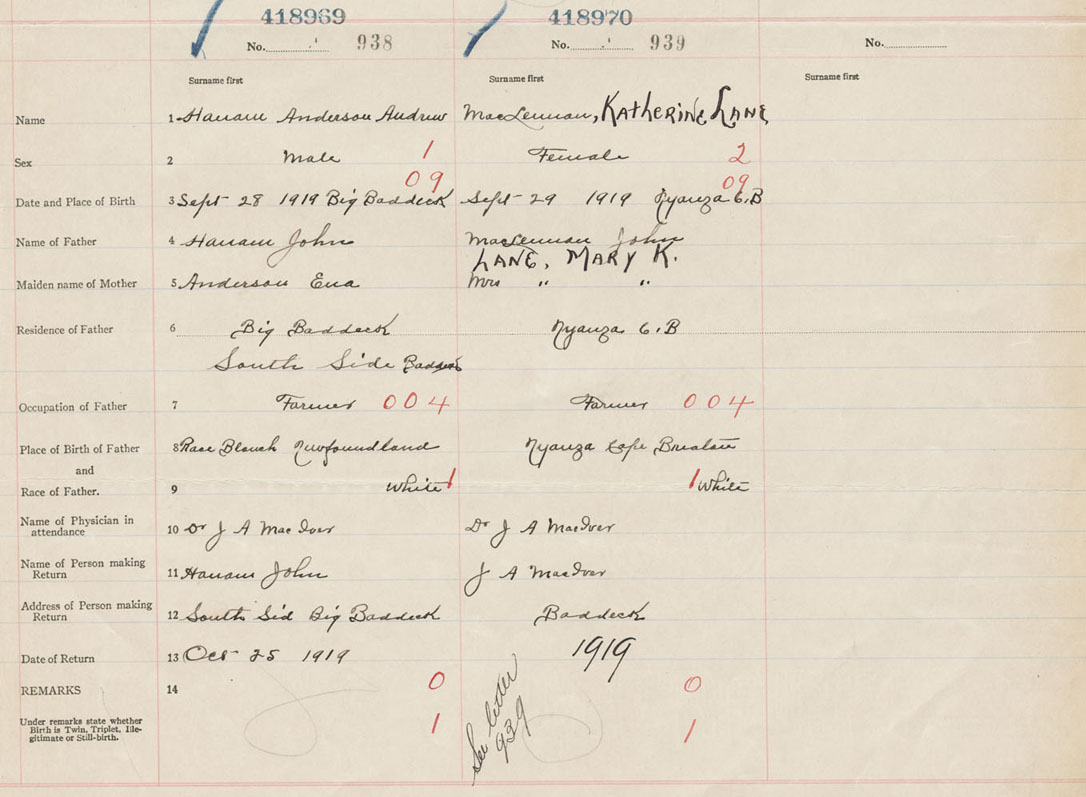 418969 418970
No. 938 No. 939 No.
Surname first Surname first Surname first
Name 1 Hanam Anderson Andrew MacLennan, Katherine Lane
Sex 2 Male 1 Female 2
09 09
Date and Place of Birth 3 Sept 28 1919 Big Baddeck Sept 29 1919 Nyanza C.B
Name of Father 4 Hanam John MacLennan John
LANE, MARY K.
Maiden name of Mother 5 Anderson Ena Mrs " "
Residence of Father 6 Big Baddeck Nyanza C.B
South Side Baddeck
Occupation of Father 7 Farmer 004 Farmer 004
Place of Birth of Father 8 Newfoundland Nyanza Cape Breton
and
Race of Father. 9 White 1 1 White
Name of Physician in
attendance 10 Dr J A MacIver Dr J A MacIver
Name of Person making
Return 11 Hanam John J A MacIver
Address of Person making
Return 12 South Sid Big Baddeck Baddeck
Date of Return 13 Oct 25 1919 1919
REMARKS 14 0 0
Under remarks state whether
Birth is Twin, Triplet, Ille-
gitimate or Still-birth. 1 1
See letter
939